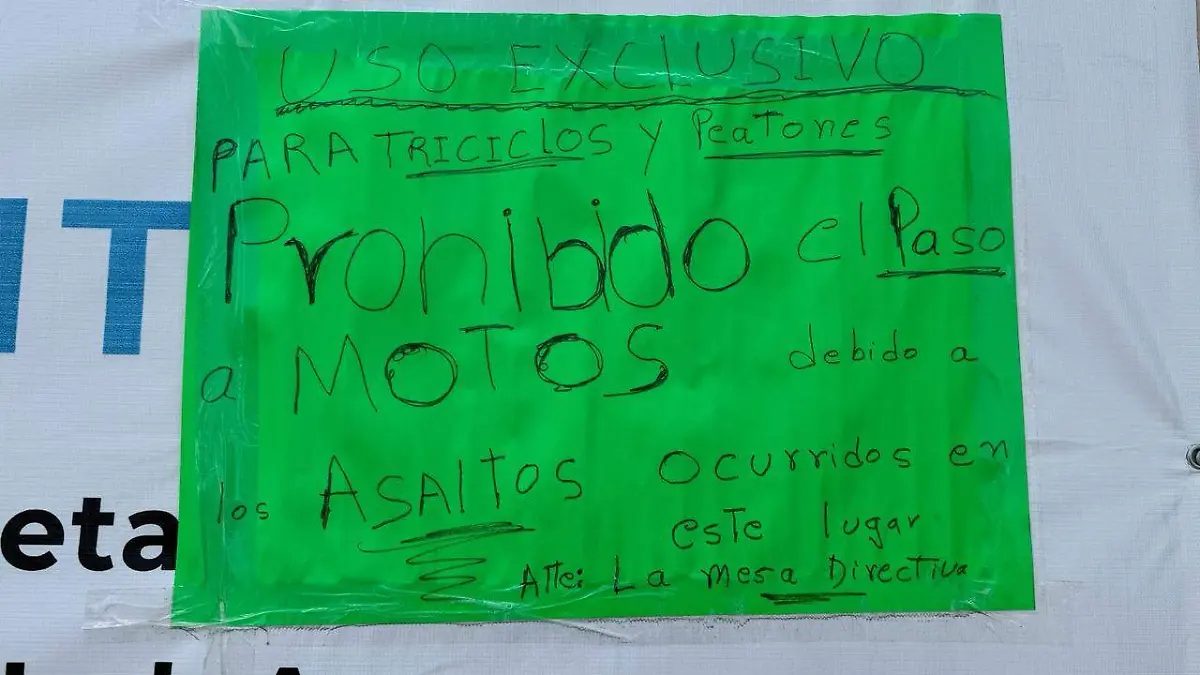 USO EXCLUSIVO
PARA TRICIClOS y PeaTones
Prohibido el Paso
a MOTOS debido a
los ASAlTOS ocurridos en
este lugar
Atte: La mesa Directiva
IT
eta